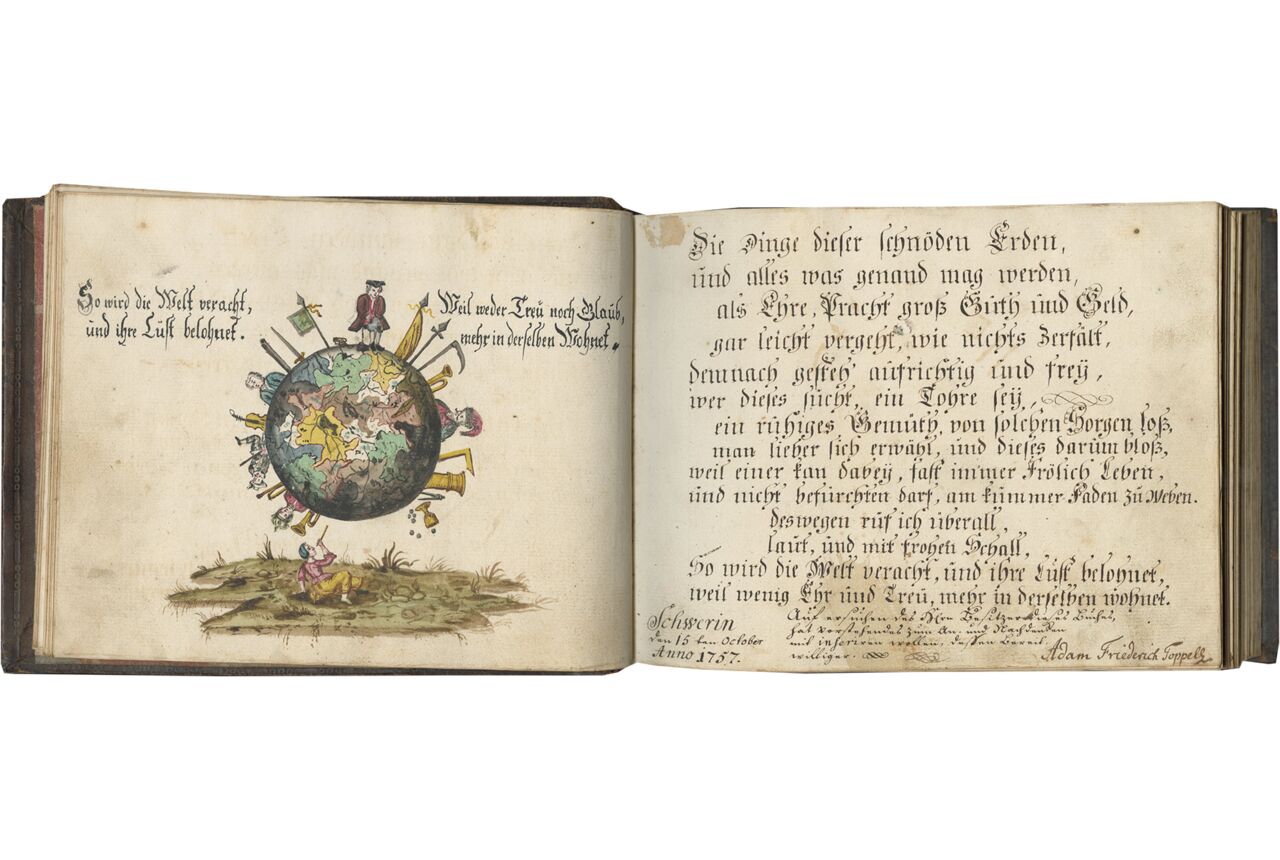 So wird die Welt veracht,
und ihre Lust belohnet.
Weil weder Treü noch Glaub,
mehr in derselben Wohnet.
Die Dinge dieser schnöden Erden,
und alles was genand mag werden,
als Ehre, Pracht groß Guth und Geld,
gar leicht vergeht, wie nichts Zerfält,
demnach gesteh aufrichtig und frey,
wer dieses sucht, ein Thore sey,
ein ruhiges Gemüth, von solchen Sorgen loß,
man lieber sich erwähl, und dieses darum bloß,
weil einer kan dabey, fast immer Frölich Leben,
und nicht befürchten darf, am kummer Faden zu Weben.
deswegen ruf ich überall,
laut, und mit frohen Schall,
So wird die Welt veracht, und ihre Lust belohnet,
weil wenig Ehr und Treü, mehr in derselben wohnet.
Schwerin
den 15 ten October
Anno 1757.
Auf ersuchen des Hrn Besitzers dieses Buches,
hat vorstehendes zum An- und Nachdenken
mit inseriren wollen, dessen bereit
williger.
Adam Friederich Toppell